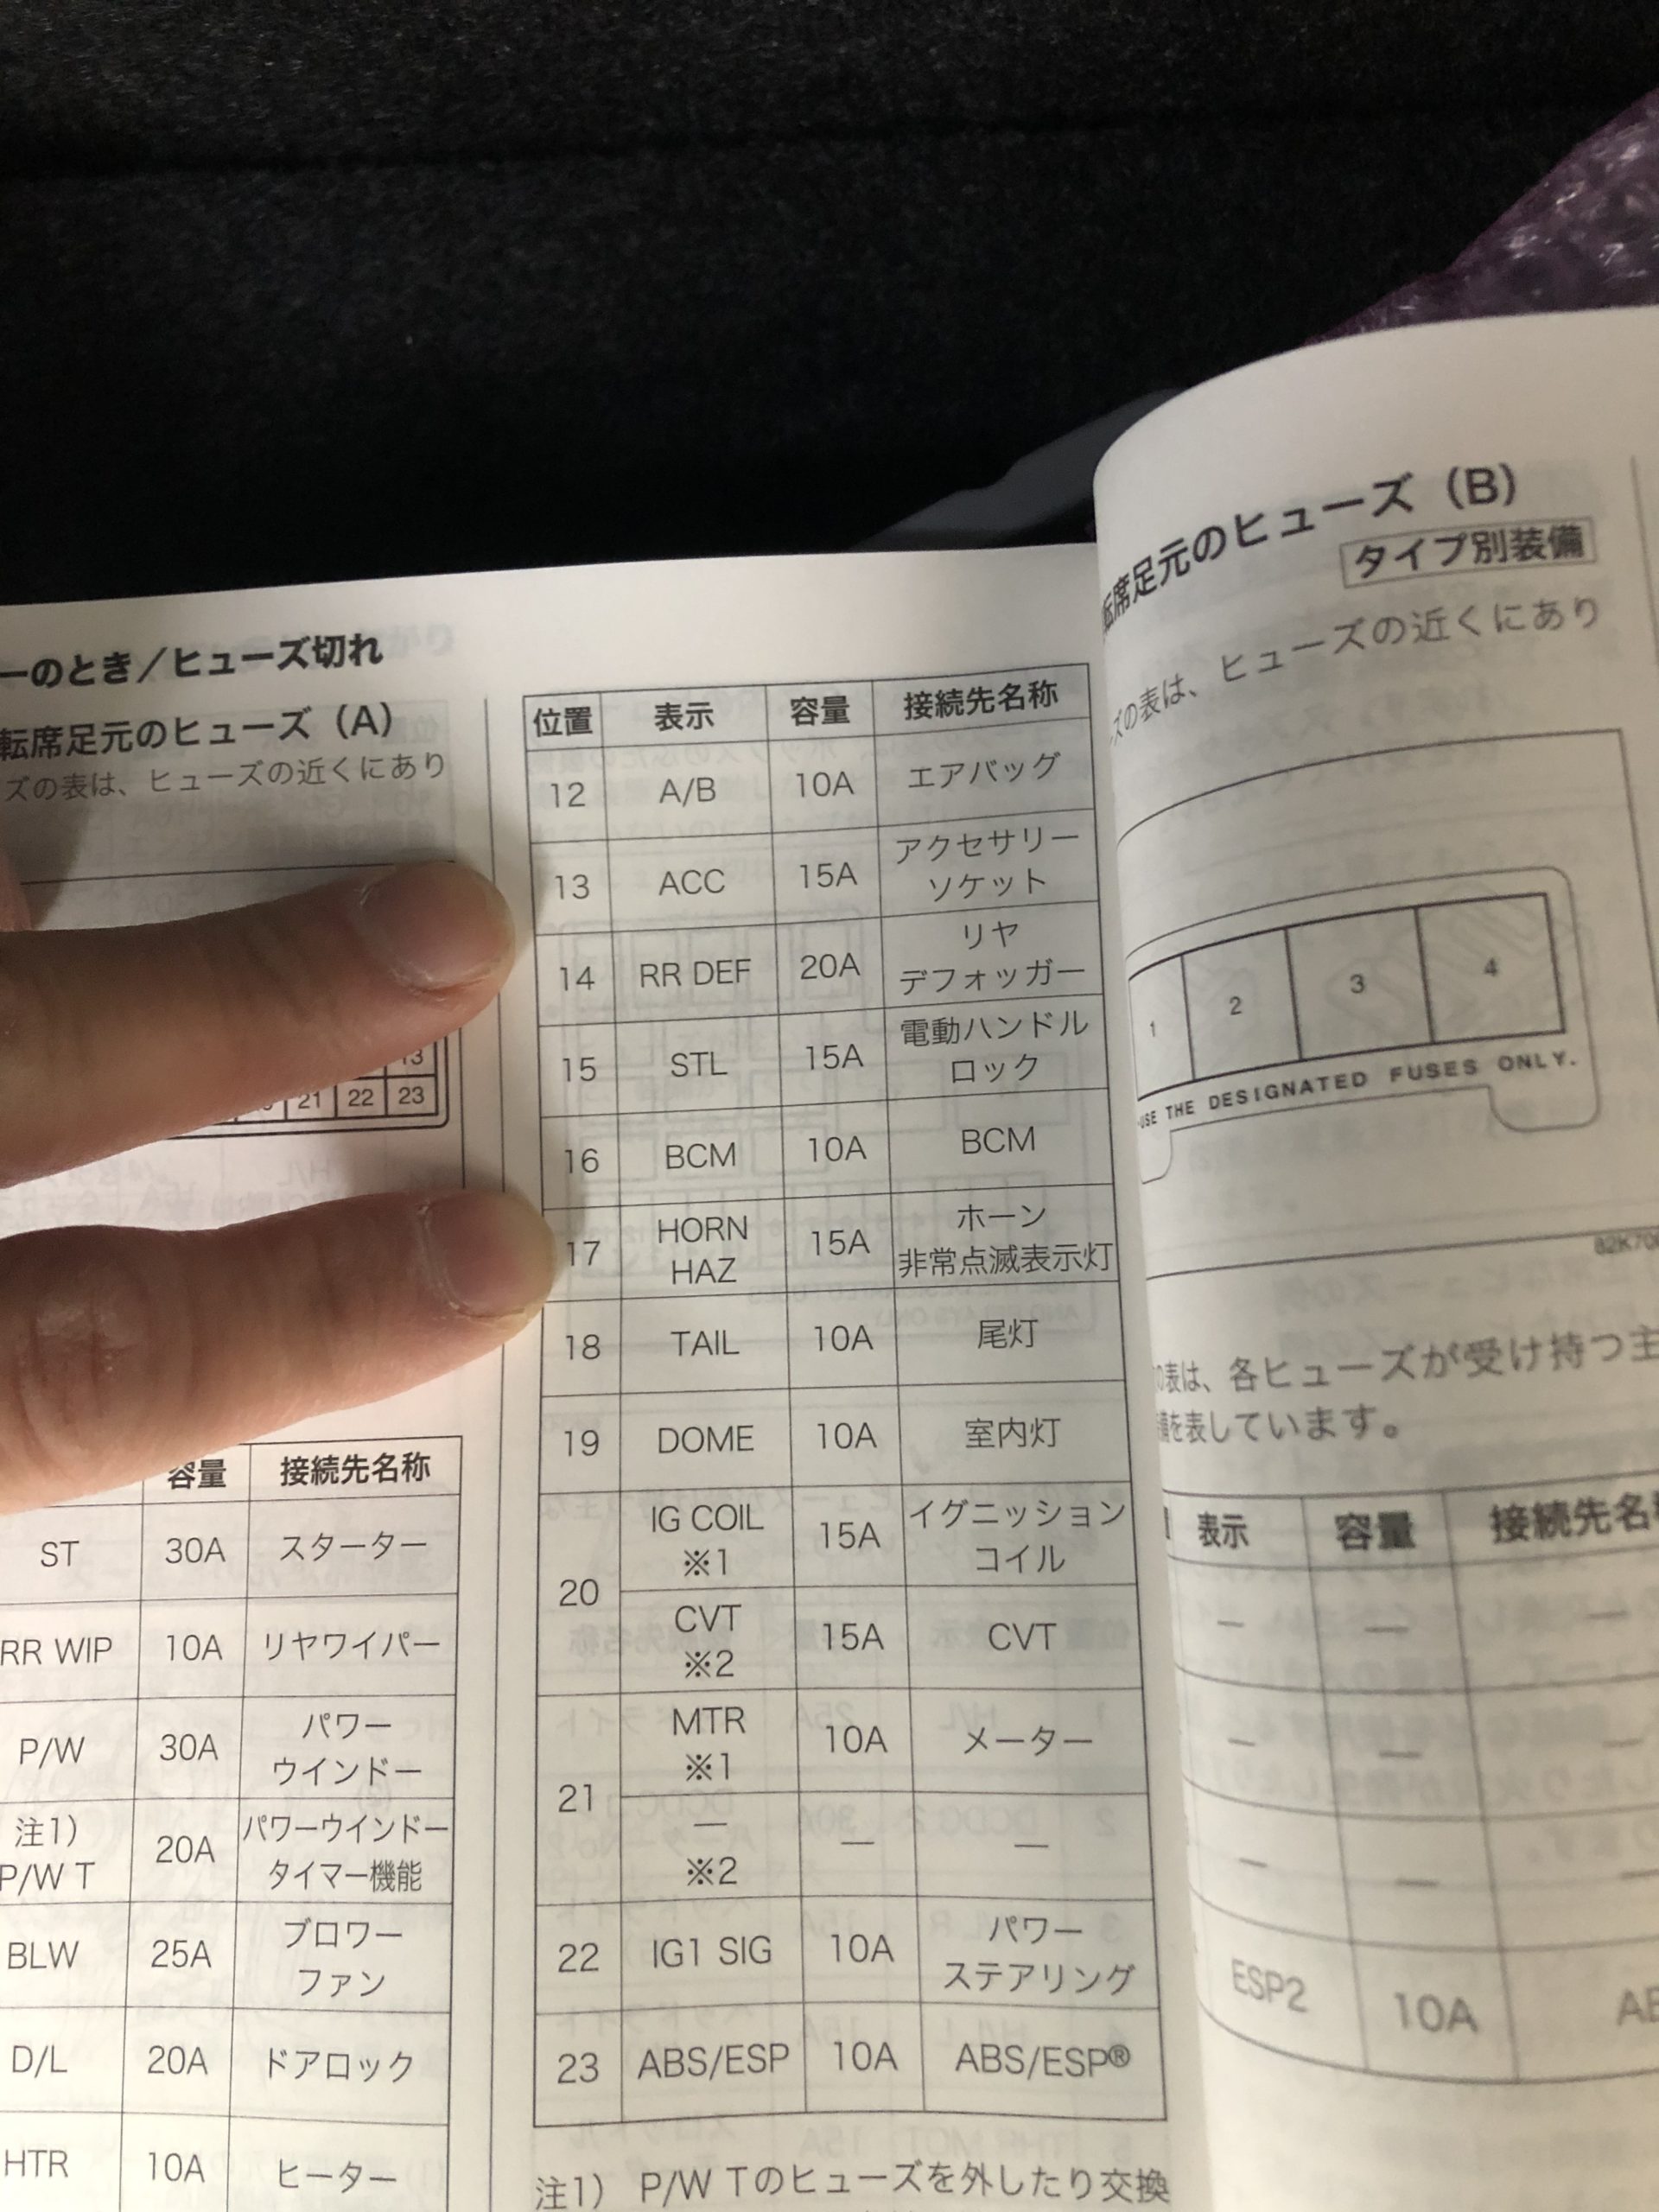 ーのとき／ヒューズ切れ
転席足元のヒューズ（A）
ズの表は、ヒューズの近くにあり
13
21 22 23
容量 接続先名称
ST 30A スターター
RR WIP 10A リヤワイパー
P/W 30A パワー
ウインドー
注1）
P/W T 20A パワーウインドー
タイマー機能
BLW 25A ブロワー
ファン
D/L 20A ドアロック
HTR 10A ヒーター
位置 表示 容量 接続先名称
12 A/B 10A エアバッグ
13 ACC 15A アクセサリー
ソケット
14 RR DEF 20A リヤ
デフォッガー
15 STL 15A 電動ハンドル
ロック
16 BCM 10A BCM
17 HORN
HAZ 15A ホーン
非常点滅表示灯
18 TAIL 10A 尾灯
19 DOME 10A 室内灯
20 IG COIL
※1 15A イグニッション
コイル
CVT
※2 15A CVT
21 MTR
※1 10A メーター
—
※2 — —
22 IG1 SIG 10A パワー
ステアリング
23 ABS/ESP 10A ABS/ESP®
注1） P/W Tのヒューズを外したり交換
転席足元のヒューズ（B）
タイプ別装備
ズの表は、ヒューズの近くにあり
1 2 3 4
USE THE DESIGNATED FUSES ONLY.
の表は、各ヒューズが受け持つ主
備を表しています。
表示 容量 接続先名
— — —
— — —
— — —
ESP2 10A